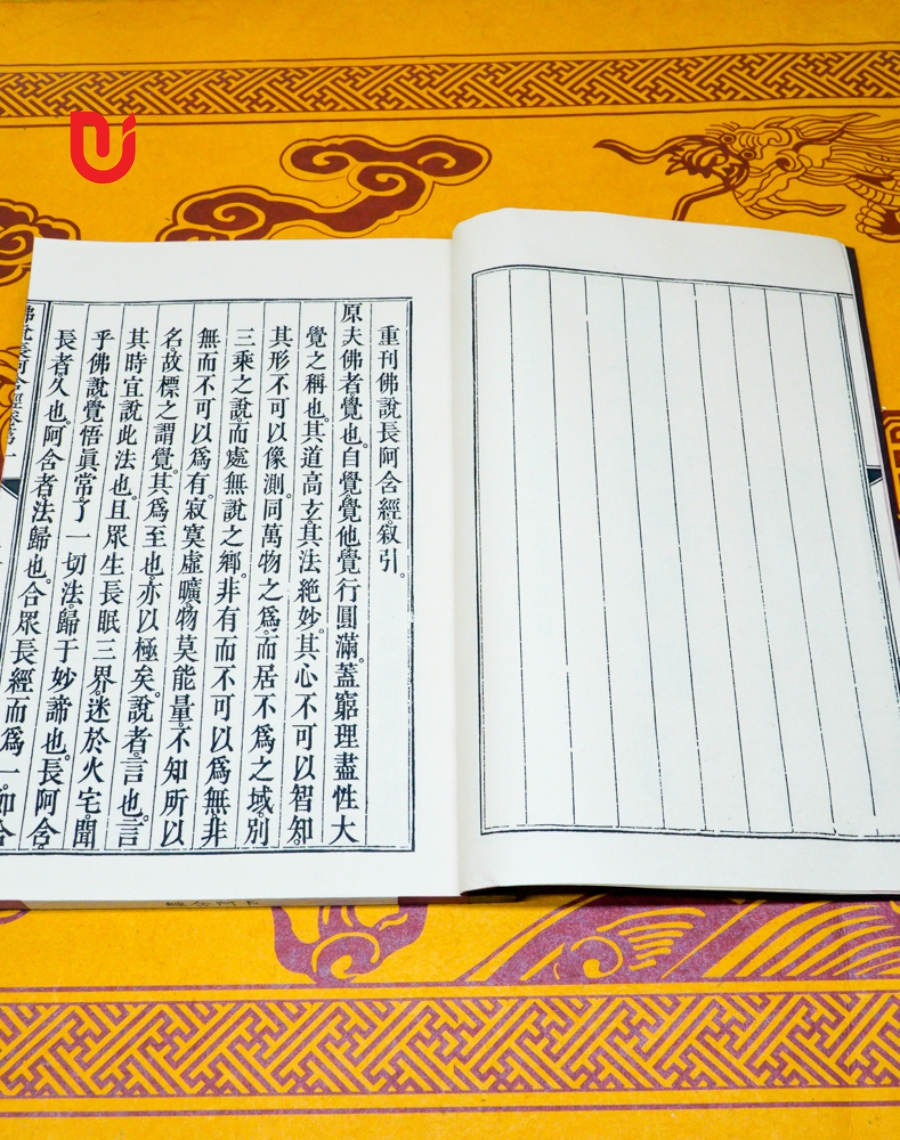 重刊佛說長阿含經敘引。
原夫佛者覺也。自覺覺他覺行圓滿。蓋窮理盡性大
覺之稱也。其道高玄。其法絕妙。其心不可以智知。
其形不可以像測。同萬物之爲。而居不爲之域。別
三乘之說。而處無說之鄉。非有而不可以爲無。非
無而不可以爲有。寂寞虛曠。物莫能量。不知所以
名。故標之謂覺。其爲至也。亦以極矣。說者。言也。言
其時宜說此法也。且眾生長眠三界。迷於火宅。聞
乎佛說覺悟眞常。了一切法。歸于妙諦也。長阿含。
長者。久也。阿含者。法歸也。合眾長經而爲一。如含
佛說長阿含經卷第一